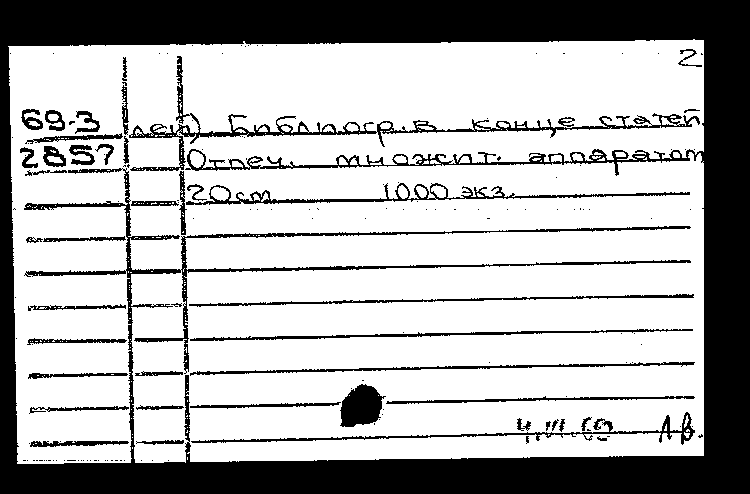 2
69-3 лей) Библиогр. в конце статей.
2857 Отпеч. множит. аппаратом
20 см 1000 экз.
4.VI.69 Л.В.